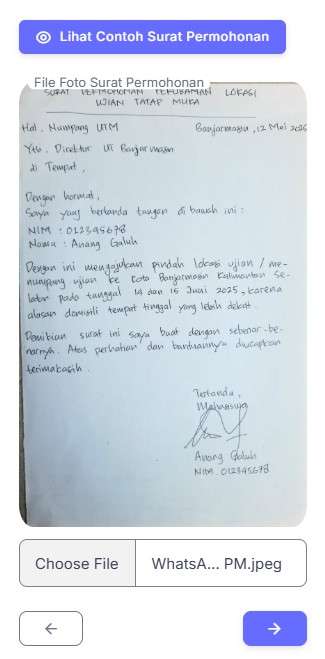 Lihat Contoh Surat Permohonan
File Foto Surat Permohonan
SURAT PERMOHONAN PERUBAHAN LOKASI
UJIAN TATAP MUKA
Hal. Numpang UTM
Banjarmasin, 12 Mei 2025
Yth. Direktur UT Banjarmasin
di Tempat,
Dengan hormat,
Saya yang bertanda tangan di bawah ini :
NIM : 012345678
Nama : Anang Galuh
Dengan ini mengajukan pindah lokasi ujian / me-
numpang ujian ke Kota Banjarmasin Kalimantan Se-
latan pada tanggal 14 dan 15 Juni 2025, karena
alasan domisili tempat tinggal yang lebih dekat.
Demikian surat ini saya buat dengan sebenar-be-
narnya. Atas perhatian dan bantuannya diucapkan
terimakasih.
Tertanda,
Mahasiswa
Anang Galuh
NIM 012345678
Choose File
WhatsA... PM.jpeg